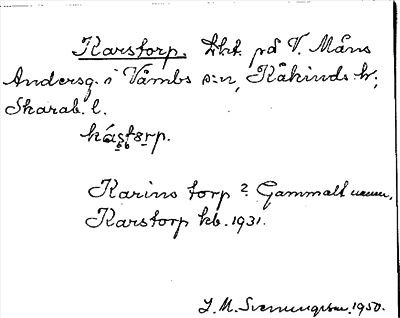 Karstorp. Lht. på V. Måns
Andersg. i Våmbs s:n, Kåkinds hr;
Skarab. l.
kástorp.
Karins torp? Gammalt namn,
Karstorp kb. 1931.
J. M. 1950.